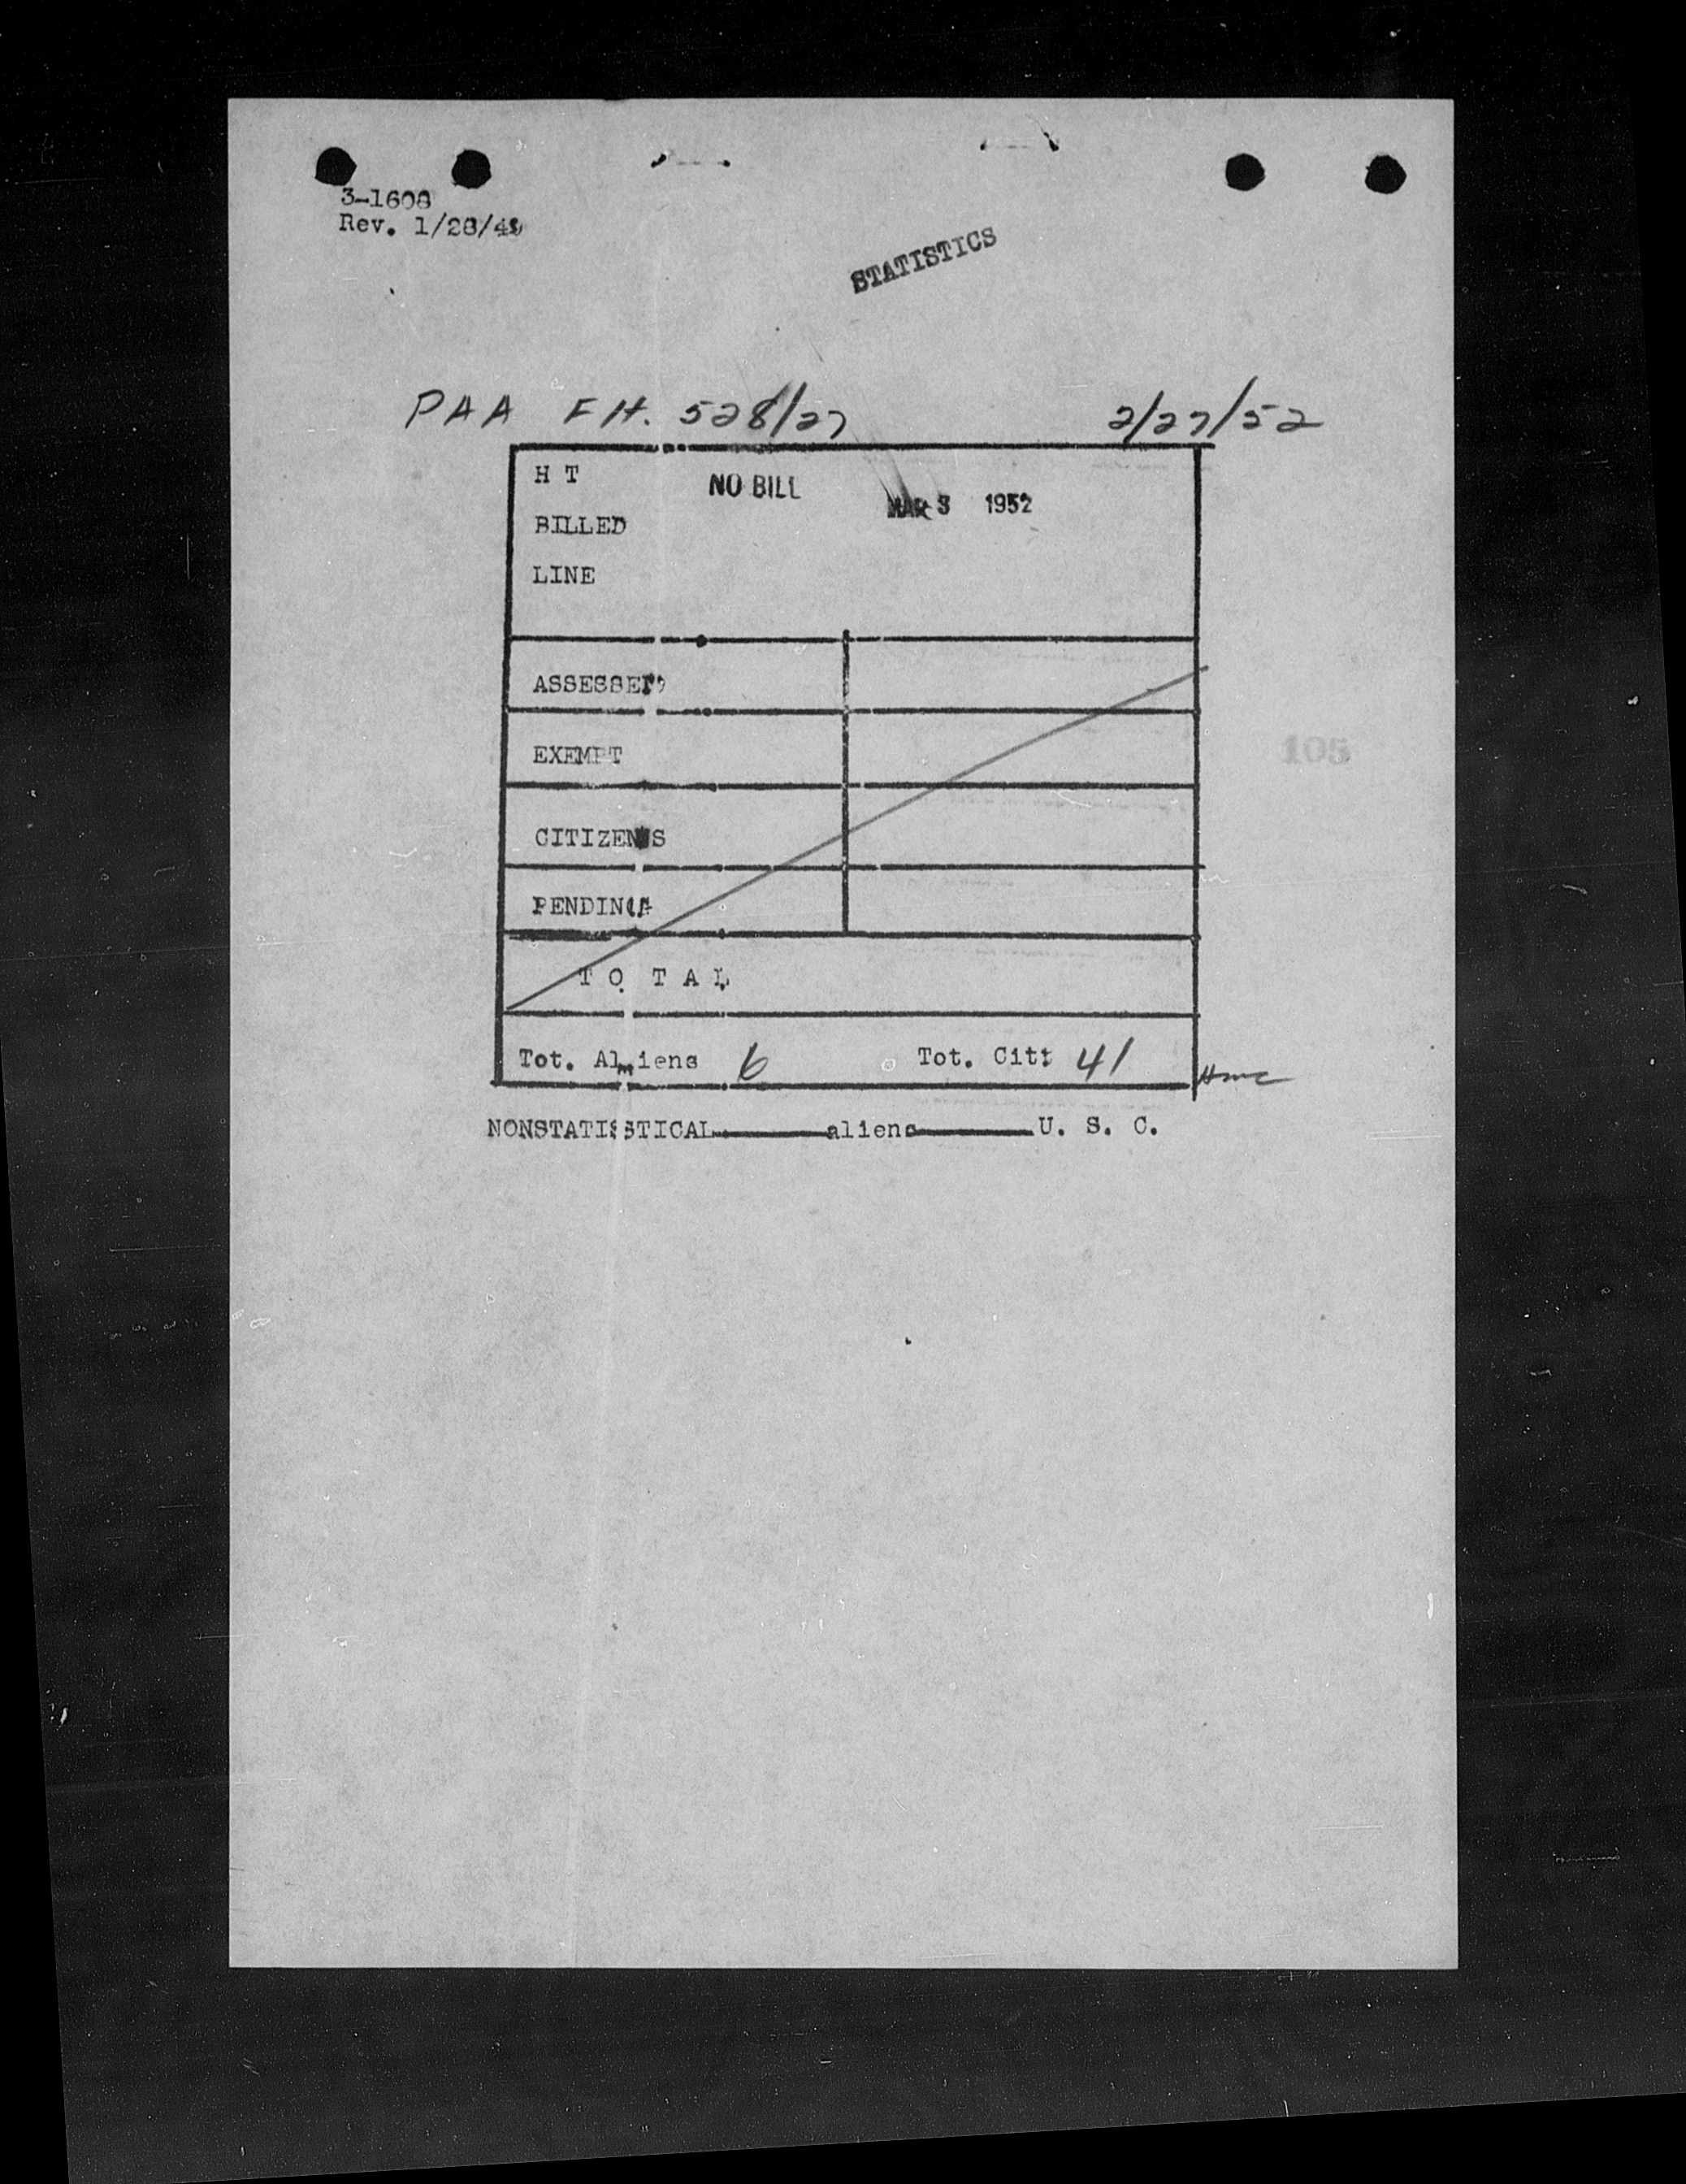 3-1608
Rev. 1/28/49
STATISTICS
PAA FH. 528/27 2/27/52
H T NO BILL MAR 3 1952
BILLED
LINE
ASSESSED
105
EXEMPT
CITIZENS
PENDING
T O T A L
Tot. Aliens 6 Tot. Cit: 41
NONSTATISTICAL aliens U. S. C.